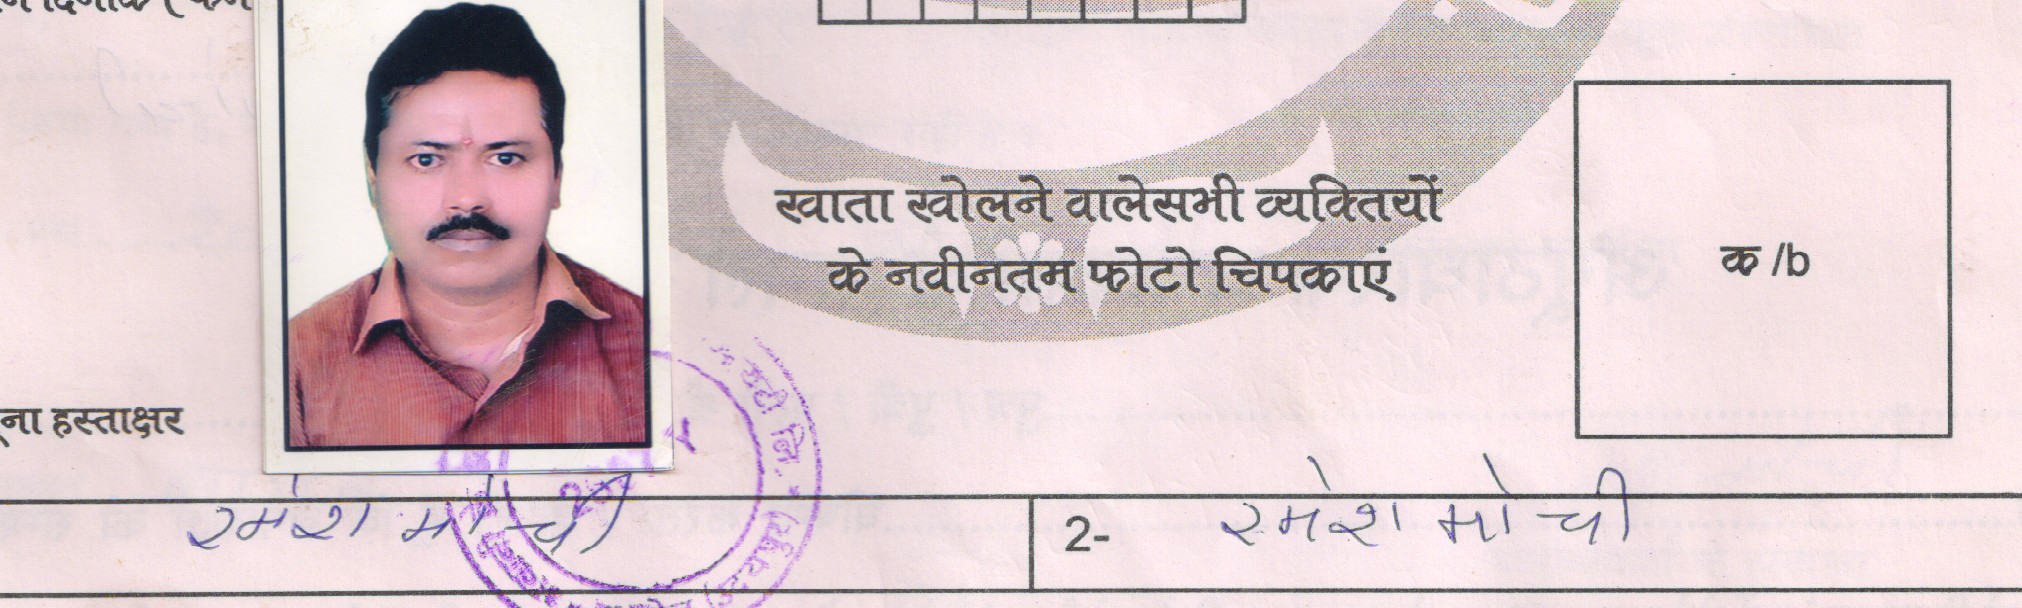 खाता खोलने वालेसभी व्यक्तियों
के नवीनतम फोटो चिपकाएं
क /b
ना हस्ताक्षर
रमेश मोची
2- रमेश मोची